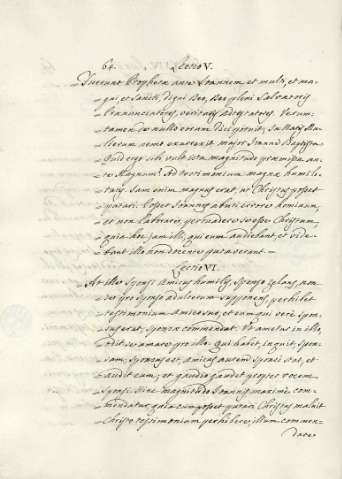 64. Lectio V.
Fuerunt Prophetæ ante Joannem et multi, et ma-
gni, et Sancti, digni Deo, Deo pleni Salvatoris
prænunciatores, veritatis
tamen de nullo eorum dici potuit, In natis mu-
lierum nemo exurrexit major Joanne Baptista
Quid ergo sibi vult ista magnitudo præmissa an-
te Magnum? Ad testimonium magnæ humili-
tatis. Sam enim magnus erat, ut Christus posset
putari. Posset Joannes abuti errore hominum,
et non laborare, persuadere se esse Christum,
quia hoc jam illi, qui eum audiebant, et vide-
bant illo non dicente putaverant.
Lectio VI.
At ille Sponsi Amicus humilis, Sponso zelans, non
se pro Sponso adulterum supponens, perhibet
testimonium Amico suo, et eum qui vere Spon-
sus erat, sponsæ commendat. Ut ametur in illo,
odit se amari pro illo. Qui habet, inquit, Spon-
sam, Sponsus est, Amicus autem Sponsi stat, et
audit eum, et gaudio gaudet propter vocem
Sponsi. Hæc magnitudo Joannis maxime com-
mendatur, quia cum posset putari Christus maluit
Christo testimonium perhibere, illum commen-
dare